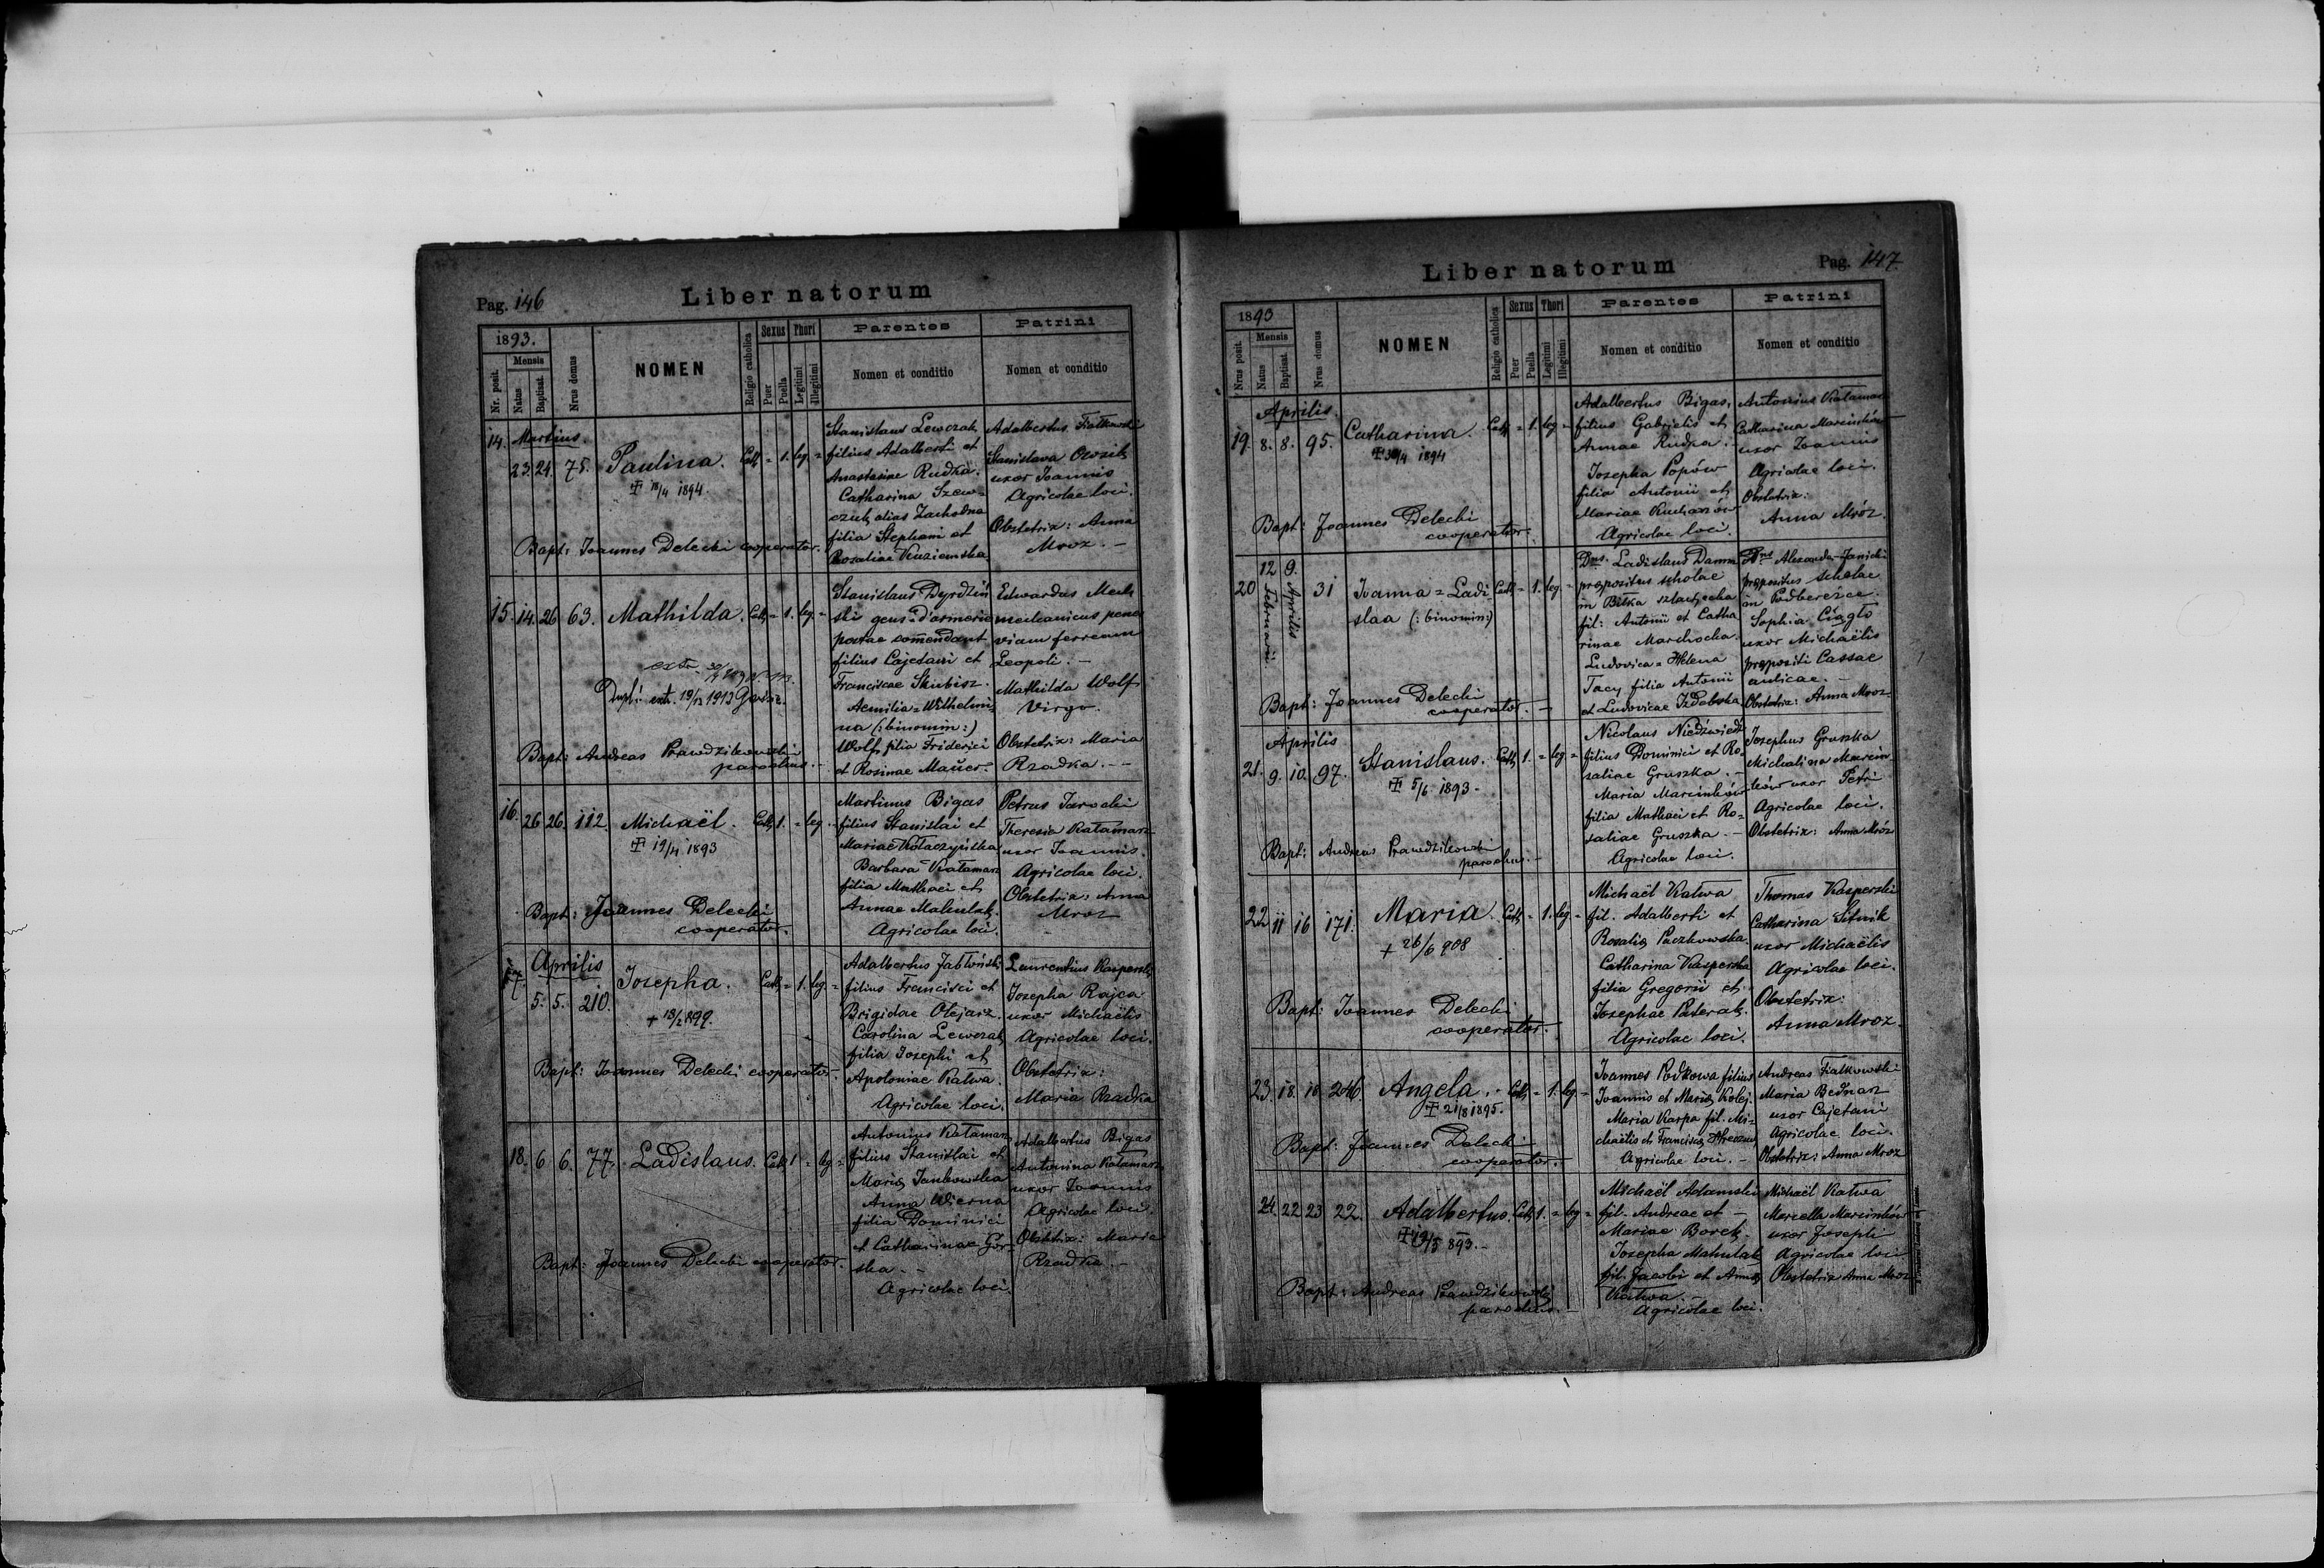 Pag. 146
Liber natorum
1893.
Nr. posit.
Mensis
Natus
Baptisat.
Nrus domus
NOMEN
Religio catholica
Sexus
Puer
Puella
Thori
Legitimi
Illegitimi
Parentes
Nomen et conditio
Patrini
Nomen et conditio
14. Martius.
23. 24. 75. Paulina. Cath = 1. leg. =
‡ 18/4 1894.
Bapt: Joannes Delecki cooperator.
Stanislaus Lewczak
filius Adalberti et
Anastasiae Rudka.
Catharina Szew=
czuk alias Zachodna
filia Stephani et
Rosaliae Kuziemska
Adalbertus Fiałkowski
Stanislava
uxor Joannis
Agricolae loci.
Obstetrix: Anna
Mroz. —
15. 14. 26 63. Mathilda. Cath = 1. leg. =
Dupl: extr. 19/12 1913
Bapt: Andreas Prawdzikowski
parochus. —
Stanislaus Dyrdziń
ski gens d'armeriae
parae commendant
filius Cajetani et
Franciscae Skubisz.
Aemilia = Wilhelmi=
na (: binomin :)
Wolf filia Friderici
et Rosinae Mauer.
Edwardus
mechanicus penes
viam ferream
Leopoli. —
Mathilda Wolf
Virgo.
Obstetrix: Maria
Rzadka. —
16. 26 26. 112. Michaël. Cath 1. = leg. =
‡ 19/4 1893
Bapt: Joannes Delecki
cooperator.
Martinus Bigas
filius Stanislai et
Mariae Kołaczyńska
Barbara Kałamarz
filia Mathaei et
Annae Mahulak.
Agricolae loci.
Petrus Jarocki
Theresia Kałamarz
uxor Joannis.
Agricolae loci.
Obstetrix: Anna
Mroz
17. Aprilis
5. 5. 210. Josepha. Cath = 1. leg. =
+ 18/2 899.
Bapt: Joannes Delecki cooperator.
Adalbertus Jabłoński
filius Francisci et
Brigidae Olejarz.
Carolina Lewczak
filia Josephi et
Apoloniae Kałwa.
Agricolae loci.
Laurentius Kasperski
Josepha Rajca
uxor Michaëlis
Agricolae loci.
Obstetrix:
Maria Rzadka
18. 6 6. 77. Ladislaus. Cath 1 = leg =
Bapt: Joannes Delecki cooperator.
Antonius Kałamarz
filius Stanislai et
Mariae Jankowska
Anna Wierna
filia Dominici
et Catharinae Gór=
ska. —
Agricolae loci.
Adalbertus Bigas
Antonina Kałamarz
uxor Joannis
Agricolae loci.
Obstetrix: Maria
Rzadka. —
Liber natorum
Pag. 147
1893
Nrus posit.
Mensis
Natus
Baptisat.
Nrus domus
NOMEN
Religio catholica
Sexus
Puer
Puella
Thori
Legitimi
Illegitimi
Parentes
Nomen et conditio
Patrini
Nomen et conditio
Aprilis.
19. 8. 8. 95. Catharina. Cath = 1. leg =
‡ 30/4 1894
Bapt: Joannes Delecki
cooperator.
Adalbertus Bigas,
filius Gabrielis et
Annae Rudka.
Josepha Popów
filia Antonii et
Mariae Kucharów
Agricolae loci.
Antonius Kałamarz
Catharina Marcinków
uxor Joannis
Agricolae loci.
Obstetrix:
Anna Mróz.
20 12 9. 31 Joanna = Ladi= Cath = 1. leg =
Februarii
Aprilis
slaa (: binomin :)
Bapt: Joannes Delecki
cooperator. —
Dnus. Ladislaus Damm
propositus scholae
in Biłka szlachecka
fil: Antonii et Catha
rinae Marchocka.
Ludovica = Helena
Tacy filia Antonii
et Ludovicae Izdebska
Dnus Alexander Janicki
propositus scholae
in Podbereżce.
Sophia Ciągło
uxor Michaëlis
propositi Cassae
aulicae. —
Obstetrix: Anna Mroz
Aprilis
21. 9. 10. 97. Stanislaus. Cath 1. = leg =
‡ 5/6 1893 —
Bapt: Andreas Prawdzikowski
parochus. —
Nicolaus Niedźwiedź
filius Dominici et Ro=
saliae Gruszka. —
Maria Marcinków
filia Mathaei et Ro=
saliae Gruszka. —
Agricolae loci.
Josephus Gruszka
Michalina Marcin
ków uxor Petri
Agricolae loci.
Obstetrix: Anna Mróz
22 11 16 171. Maria. Cath = 1. leg. =
+ 26/6 908
Bapt: Joannes Delecki
cooperator.
Michaël Kałwa
fil. Adalberti et
Rosaliae Paczkowska.
Catharina Kasperska
filia Gregorii et
Josephae Paterak.
Agricolae loci.
Thomas Kasperski
Catharina Sitnik
uxor Michaëlis
Agricolae loci.
Obstetrix:
Anna Mroz.
23. 18. 18. 246. Angela. Cath = 1. leg =
‡ 21/8 1895.
Bapt: Joannes Delecki
cooperator.
Joannes Podkowa filius
Joannis et Mariae Kolej.
Maria Karpa fil. Mi=
chaëlis et Franciscae
Agricolae loci. —
Andreas Fiałkowski
Maria Bednarz
uxor Cajetani
Agricolae loci.
Obstetrix: Anna Mroz
24. 22 23 22. Adalbertus. Cath 1. = leg =
‡ 19/5 893. —
Bapt: Andreas Prawdzikowski
parochus. —
Michaël Adamski
fil. Andreae et —
Mariae Borek.
Josepha Mahulak
fil. Jacobi et Annae
Kałwa. —
Agricolae loci.
Michaël Kałwa
Marcella Marcinków
uxor Josephi
Agricolae loci
Obstetrix Anna Mroz